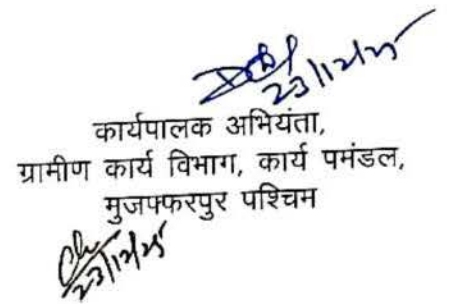 23/12/25
कार्यपालक अभियंता,
ग्रामीण कार्य विभाग, कार्य पमंडल,
मुजफ्फरपुर पश्चिम
23/12/25